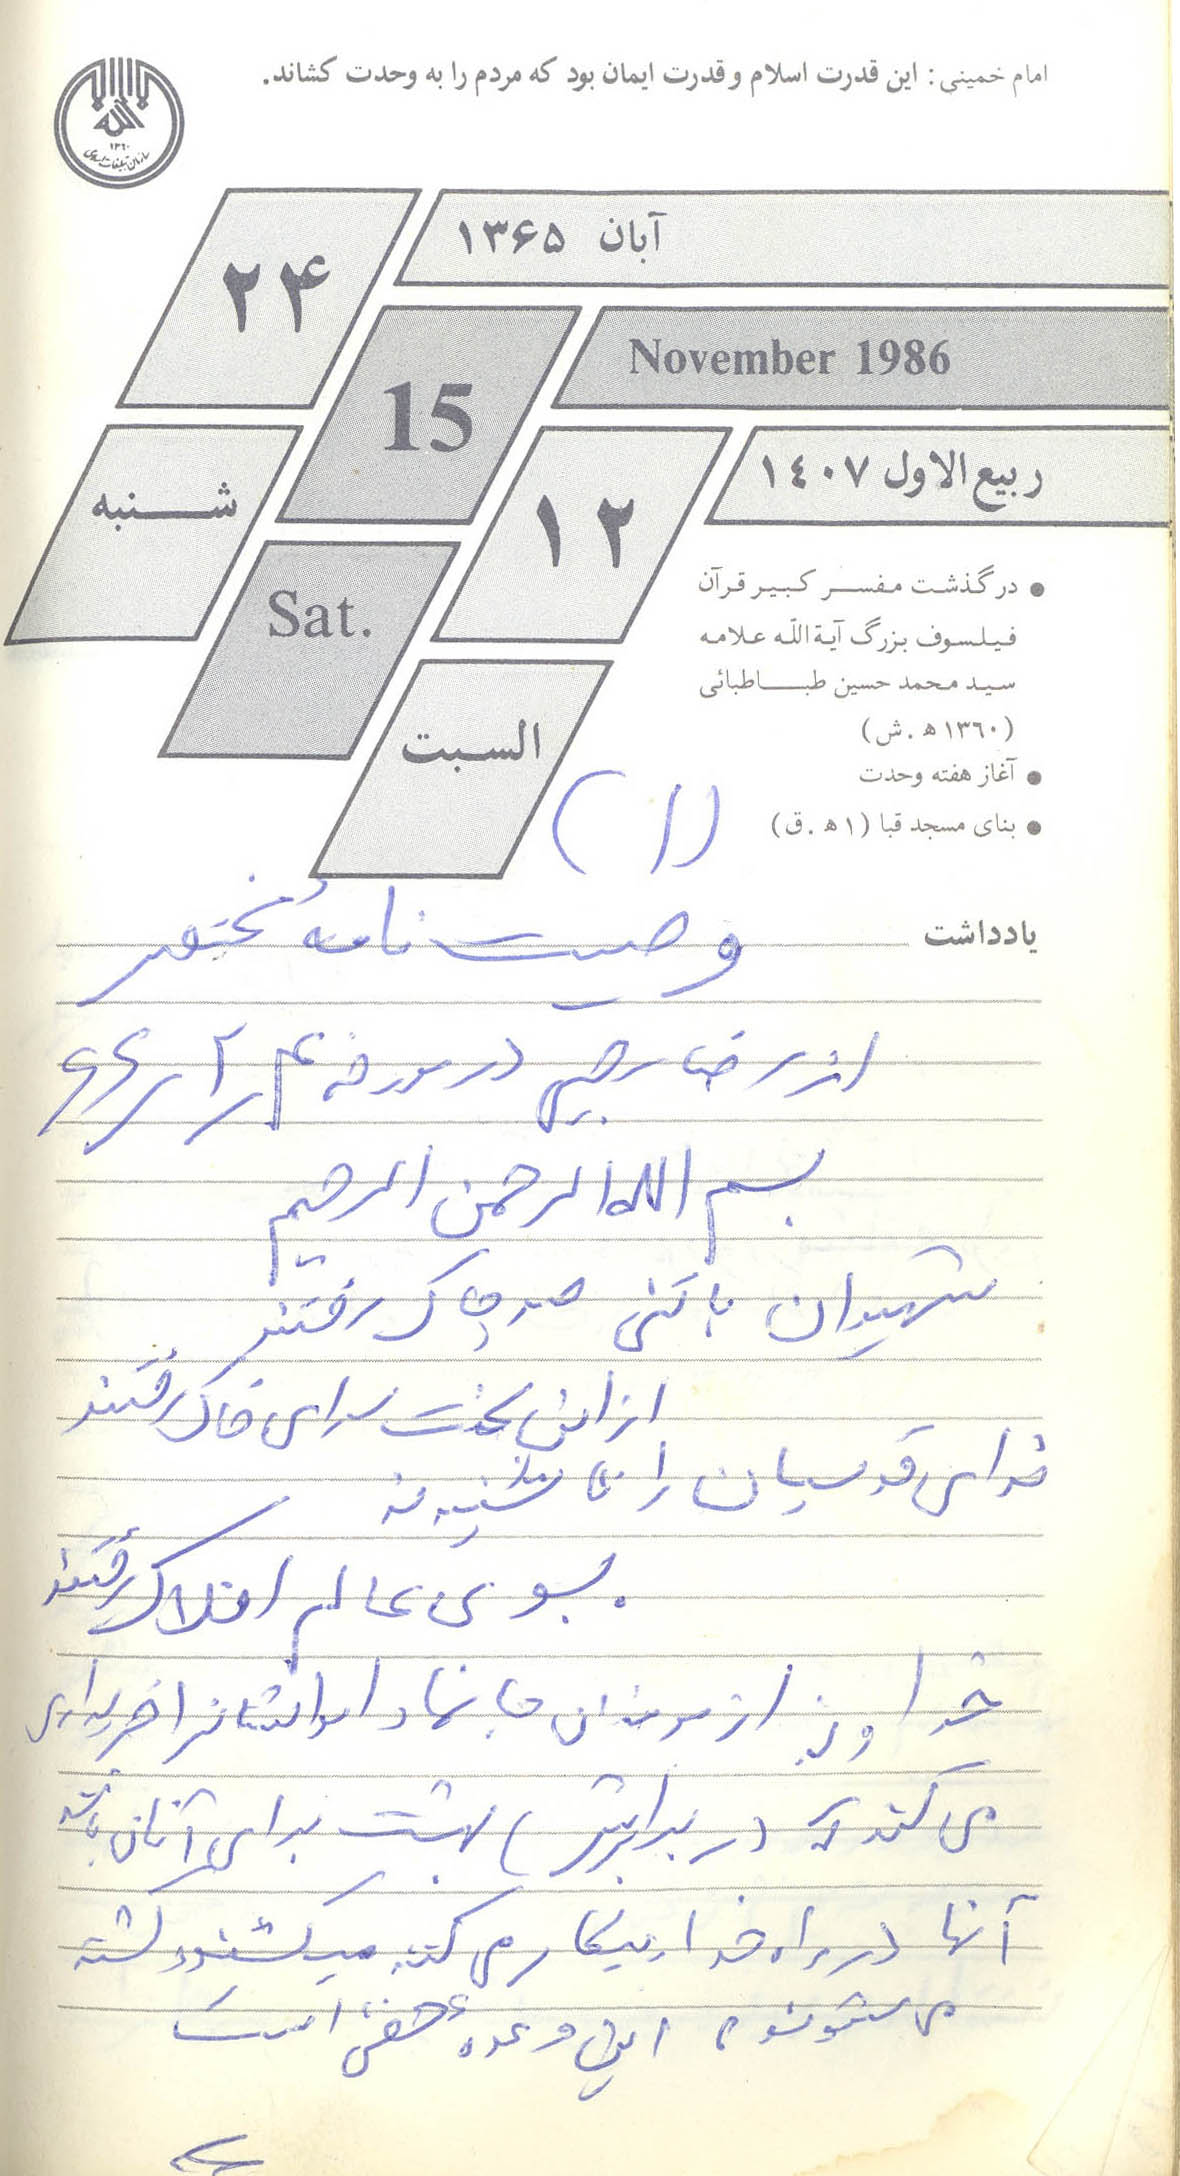 امام خمینی: این قدرت اسلام و قدرت ایمان بود که مردم را به وحدت کشاند.
الله
۱۳۶۰
سازمان تبلیغات اسلامی
آبان ۱۳۶۵
۲۴
November 1986
15
ربیع الاول ۱٤۰۷
۱۲
شنبه
Sat.
السبت
• درگذشت مفسر کبیر قرآن
فیلسوف بزرگ آیة الله علامه
سید محمد حسین طباطبائی
(۱۳٦۰ ه‍ .ش)
• آغاز هفته وحدت
• بنای مسجد قبا (۱ ه‍ .ق)
(۱)
یادداشت
وصیت نامهٔ مختصر
از رضا رجبی در مورخه ۴/۲/۶۶
بسم الله الرحمن الرحیم
شهیدان با تنی صد چاک رفتند
از این محنت سرای خاک رفتند
ندای قدسیان را تا شنیدند
بسوی عالم افلاک رفتند
خداوند از مومنان جانها و اموالشانرا خریداری
می کند که در برابرش بهشت برای آنان باشد
آنها در راه خدا پیکار می کنند میکشند و کشته
می شوند این وعدهٔ حقی است